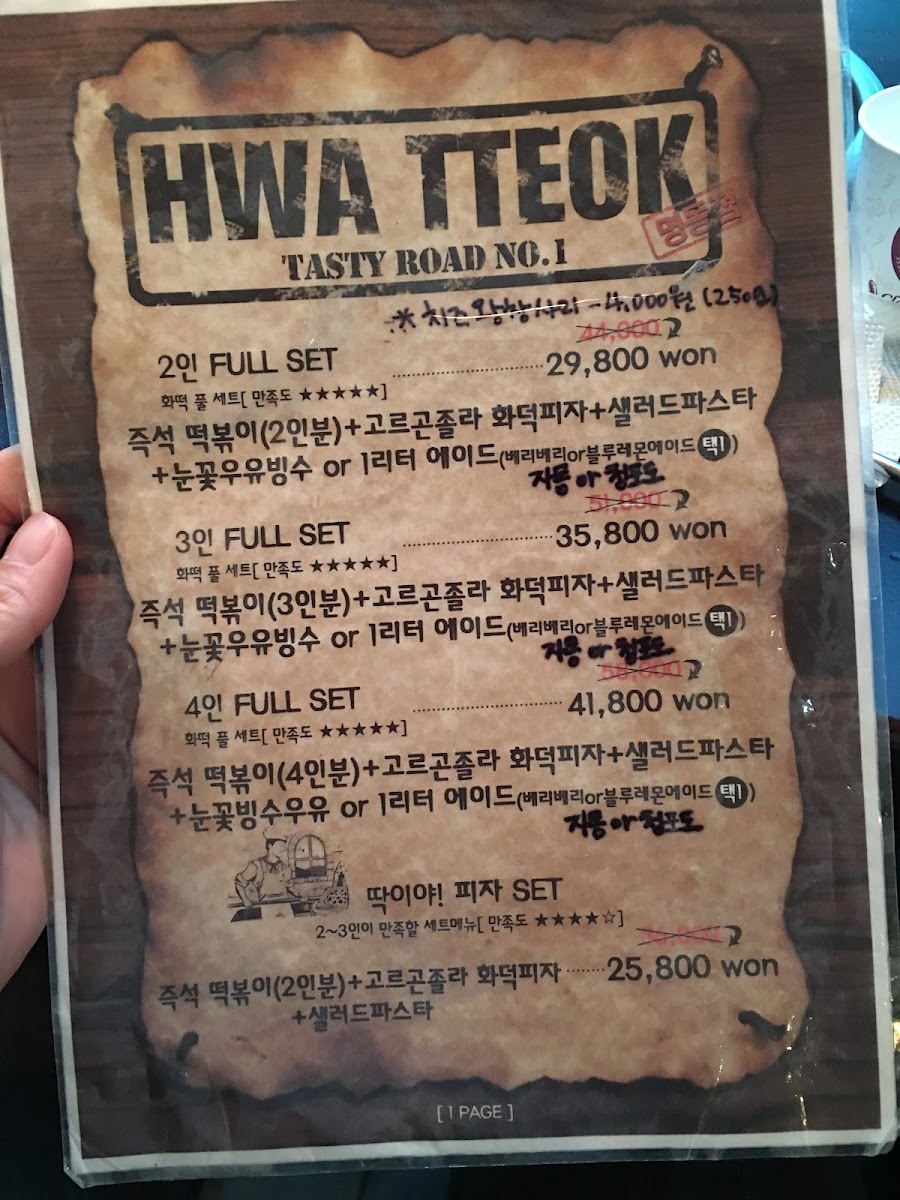 HWA TTEOK
TASTY ROAD NO.1
명동점
※ 치즈왕창사리 - 4,000원 (250g)
44,000
2인 FULL SET 29,800 won
화떡 풀 세트[ 만족도 ★★★★★]
즉석 떡볶이(2인분)+고르곤졸라 화덕피자+샐러드파스타
+눈꽃우유빙수 or 1리터 에이드(베리베리or블루레몬에이드 택1)
자몽 or 청포도
51,000
3인 FULL SET 35,800 won
화떡 풀 세트[ 만족도 ★★★★★]
즉석 떡볶이(3인분)+고르곤졸라 화덕피자+샐러드파스타
+눈꽃우유빙수 or 1리터 에이드(베리베리or블루레몬에이드 택1)
자몽 or 청포도
58,000
4인 FULL SET 41,800 won
화떡 풀 세트[ 만족도 ★★★★★]
즉석 떡볶이(4인분)+고르곤졸라 화덕피자+샐러드파스타
+눈꽃빙수우유 or 1리터 에이드(베리베리or블루레몬에이드 택1)
자몽 or 청포도
딱이야! 피자 SET
2~3인이 만족할 세트메뉴[ 만족도 ★★★★☆]
즉석 떡볶이(2인분)+고르곤졸라 화덕피자 25,800 won
+샐러드파스타
[ 1 PAGE ]